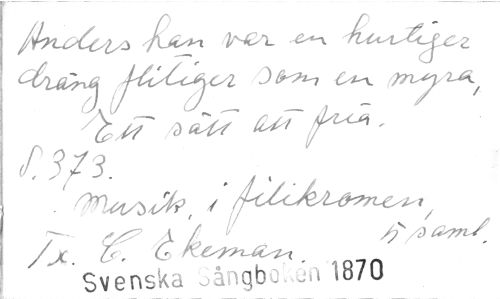 Anders han var en hurtiger
dräng flitiger som en myra,
Ett sätt att fria.
S. 373.
Musik, i filikromen,
5 saml.
Tx. C. Ekeman.
Svenska Sångboken 1870